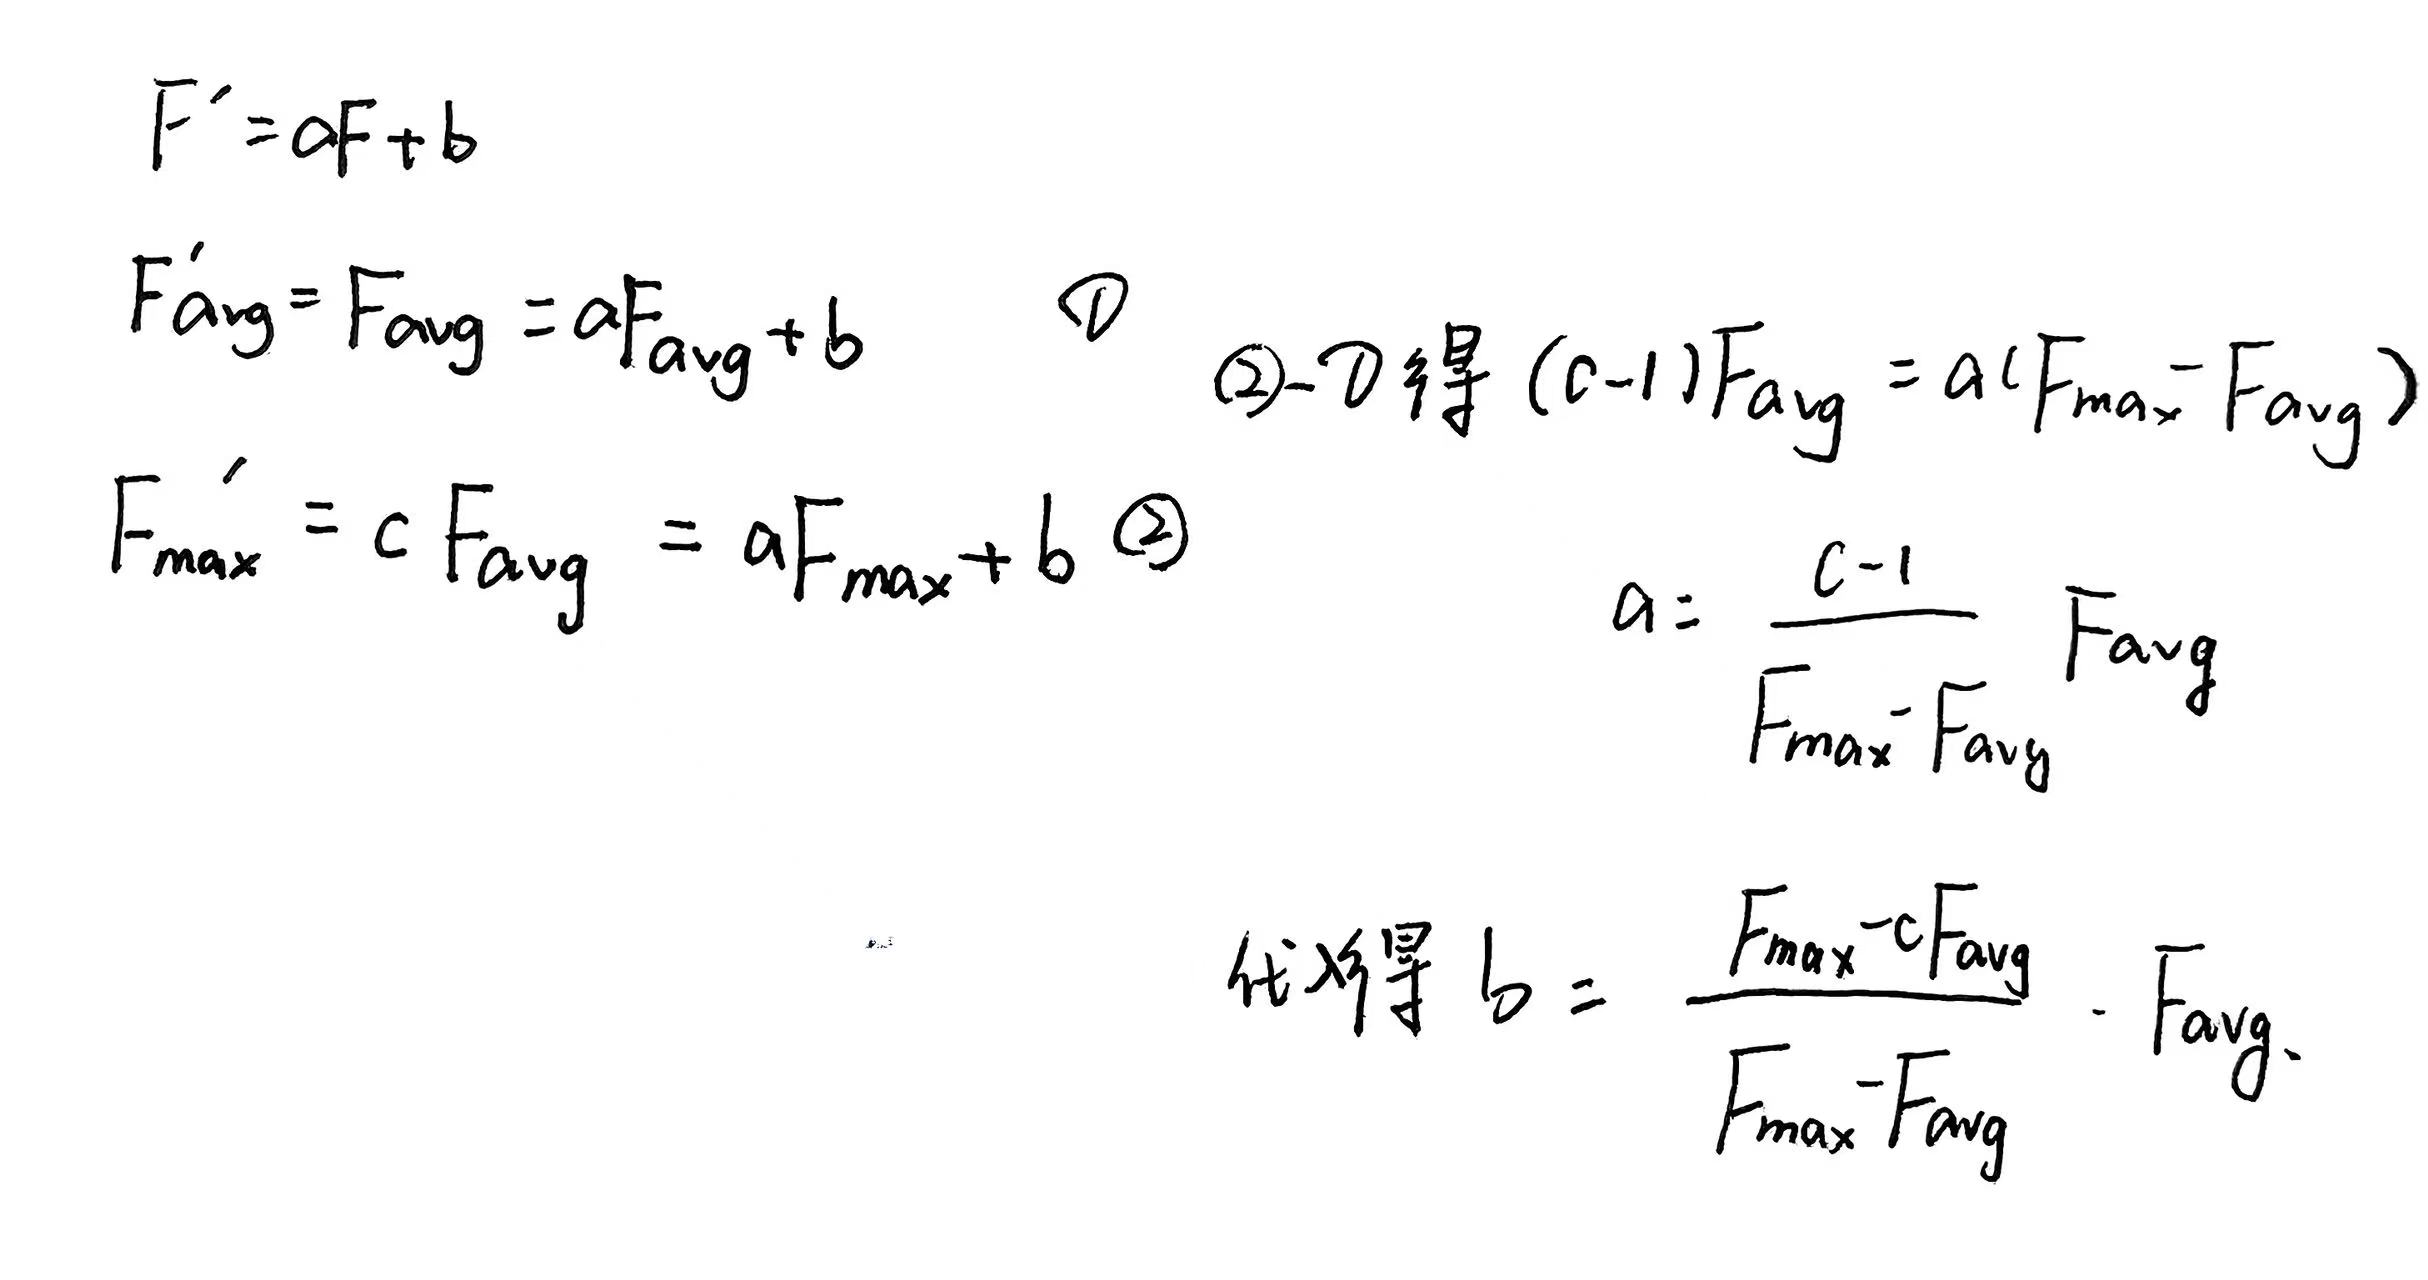 F' = aF + b
F'avg = Favg = aFavg + b ①
Fmax' = c Favg = aFmax + b ②
②-① 得 (c-1)Favg = a(Fmax - Favg)
a = (c-1)/(Fmax - Favg) Favg
代入得 b = (Fmax - cFavg)/(Fmax - Favg) · Favg.